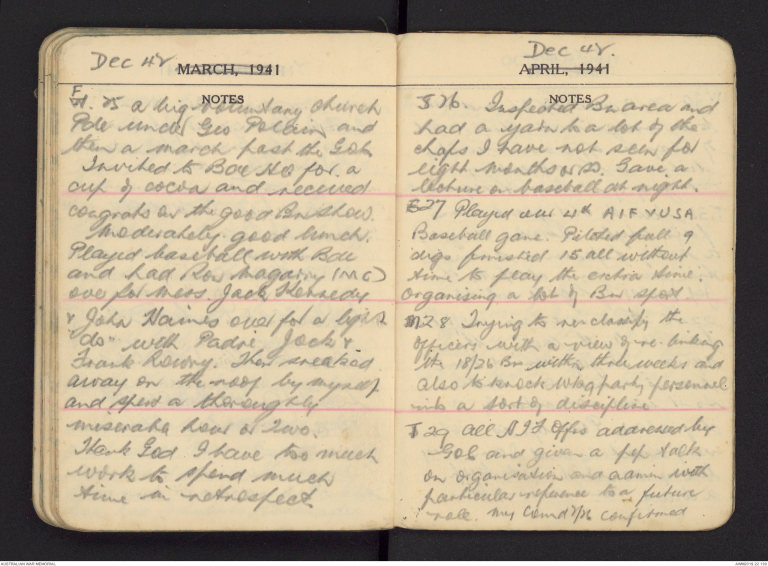 Dec 42
MARCH, 1941
NOTES
F. 25 a big voluntary church
Pde under Geo Polain and
then a march past the GOC
Invited to Bde HQ for a
cup of cocoa and received
congrats on the good Bn show.
Moderately good lunch.
Played baseball with Bde
and had Ron Magarry (MC)
over for mess. Jack Kennedy
& John Haines over for a light
"do" with Padre, Jock &
Frank. Then sneaked
away on the roof by myself
and spent a thoroughly
miserable hour or two.
Thank God I have too much
work to spend much
time in retrospect
Dec 42.
APRIL, 1941
NOTES
S 26. Inspected Bn area and
had a yarn to a lot of the
chaps I have not seen for
eight months or so. Gave a
lecture on baseball at night.
S 27 Played our 4th AIF V USA
Baseball game. Pitched full 9
digs finished 15 all without
time to play the extra time.
Organising a lot of Bn sport.
M 28 Trying to reclassify the
officers with a view of re-linking
the 18/26 Bn within three weeks and
also to knock Wkg party personnel
into a sort of discipline
T 29 All AIF Offrs addressed by
GOC and given a pep talk
on organisation and admin with
particular reference to a future
role. My Comd 2/26 confirmed
AUSTRALIAN WAR MEMORIAL